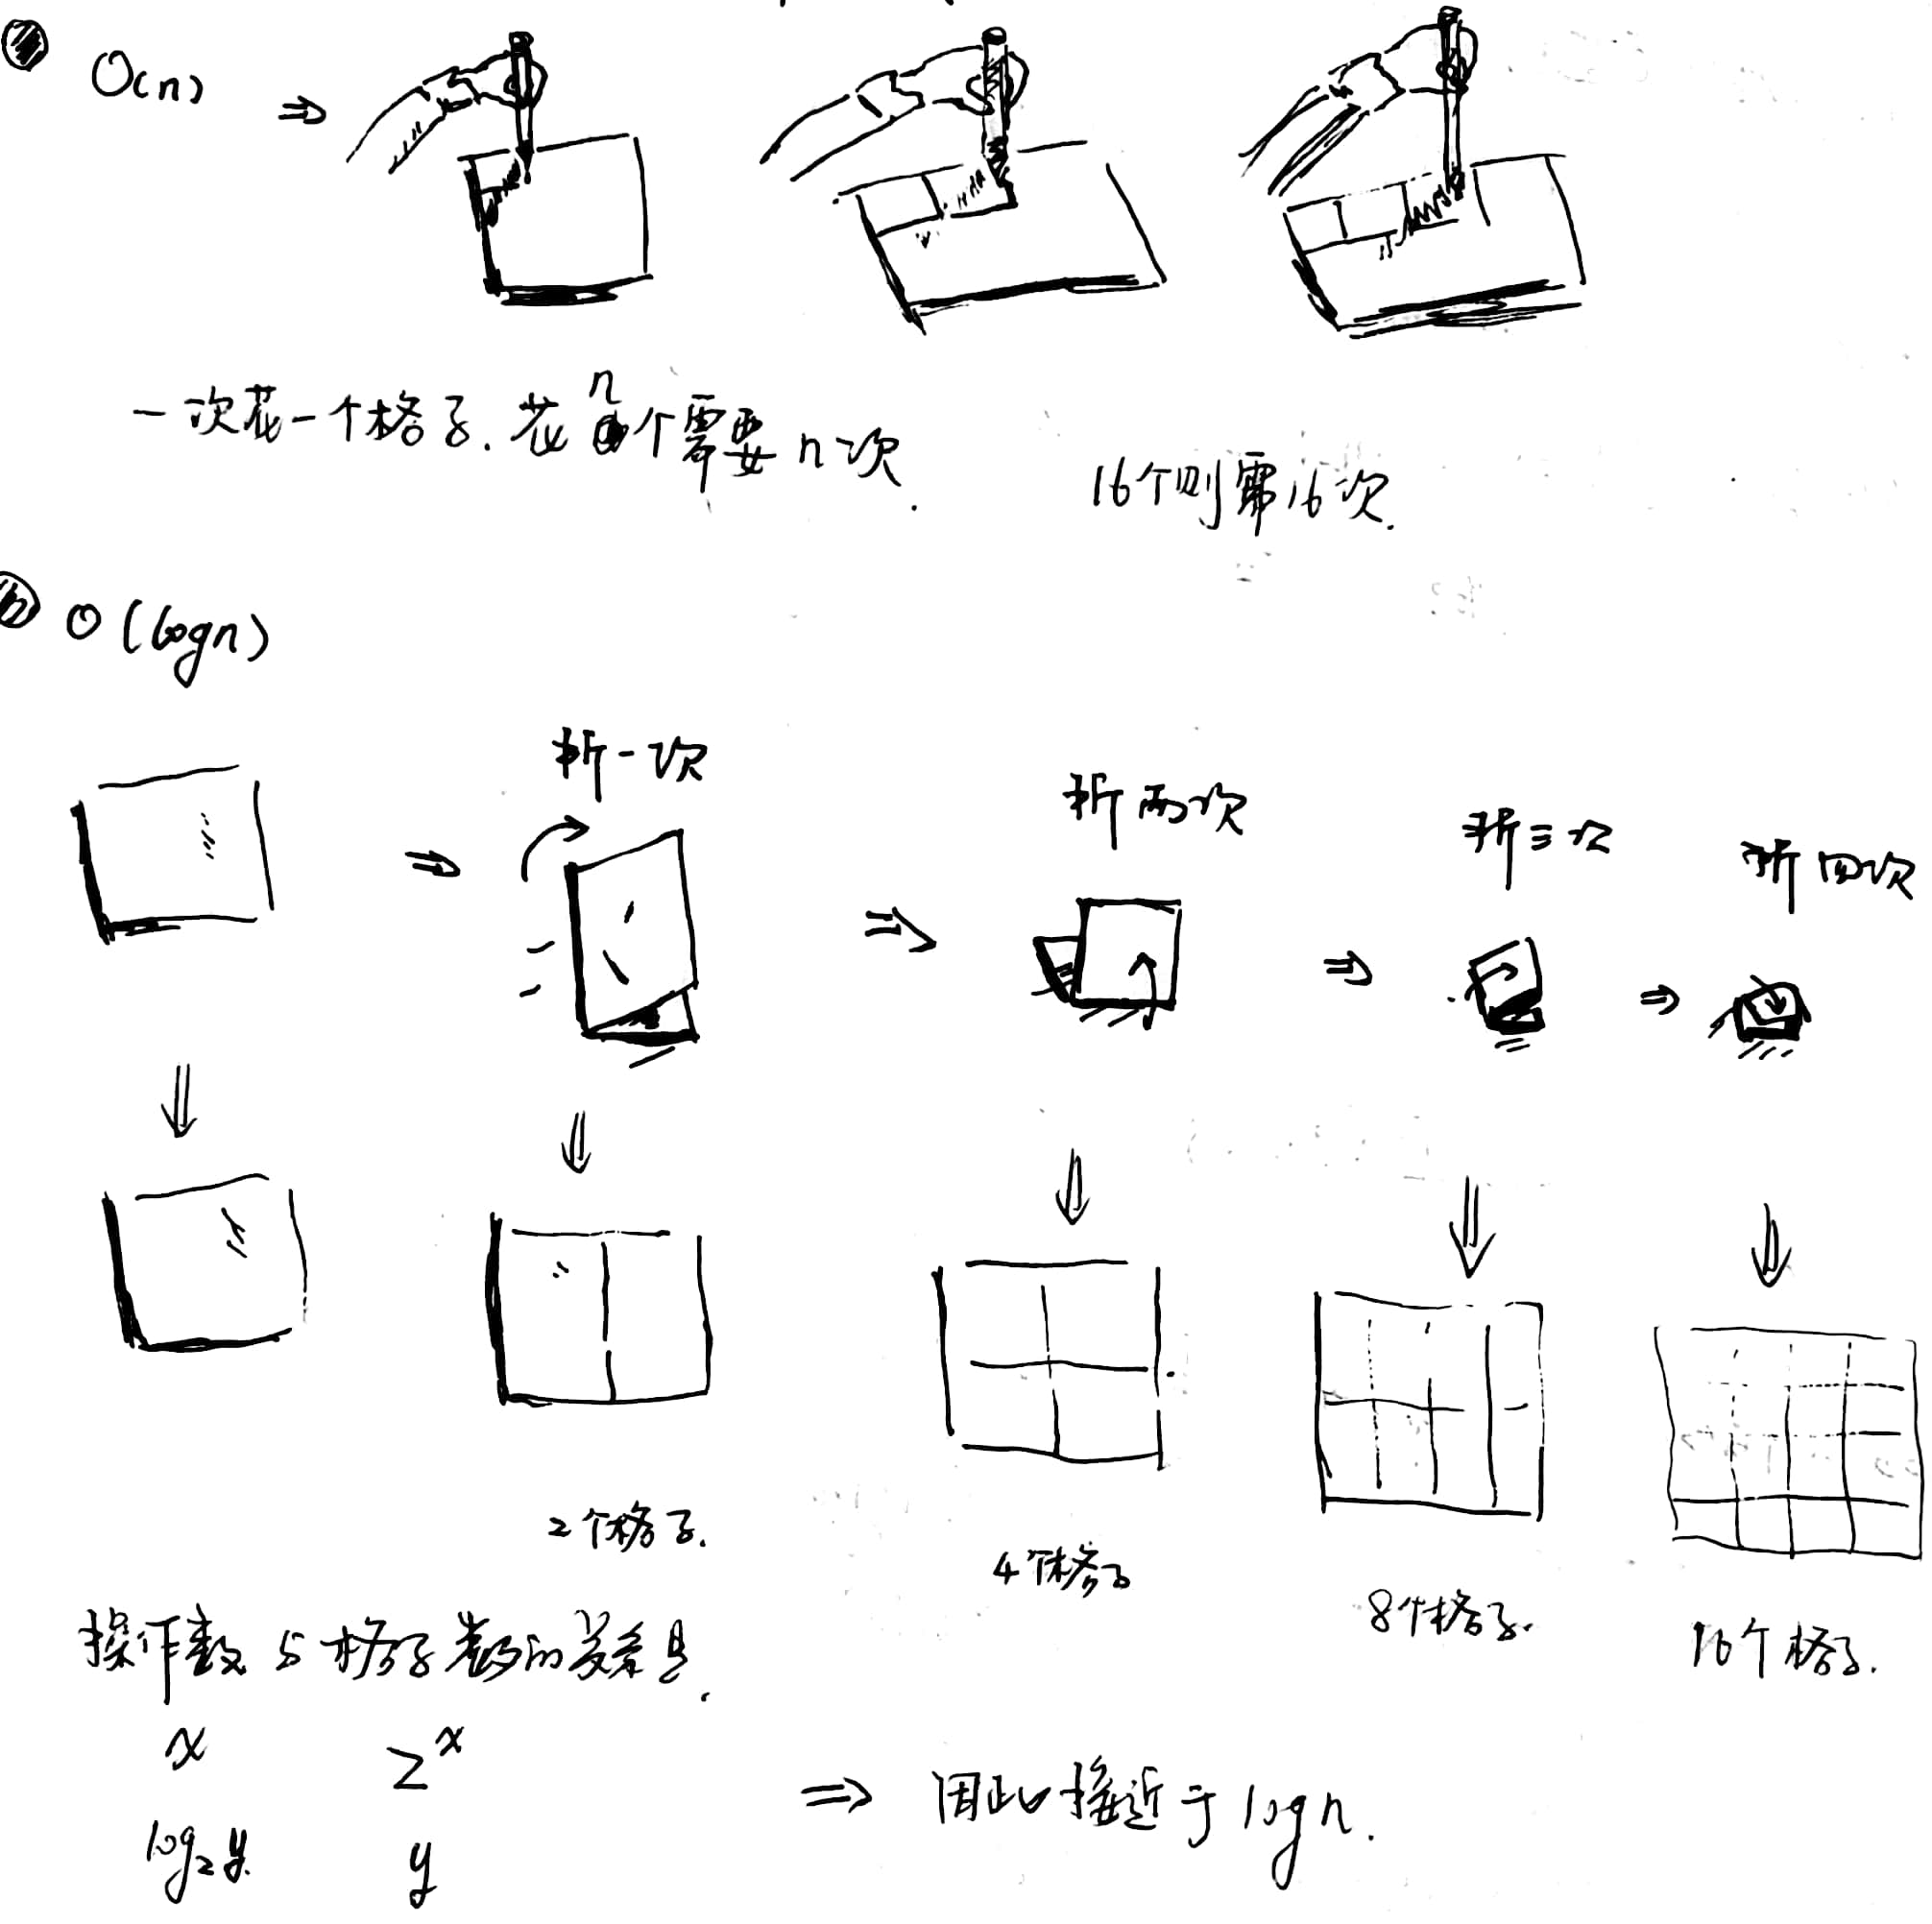 O(n)
一次花一个格子.花n个需要n次.
16个则需16次.
O(logn)
折一次
折两次
折三次
折四次
2个格子.
4个格子
8个格子.
16个格子.
操作数与格子数的关系
x 2^x
log₂y y
⇒ 因此接近于logn.